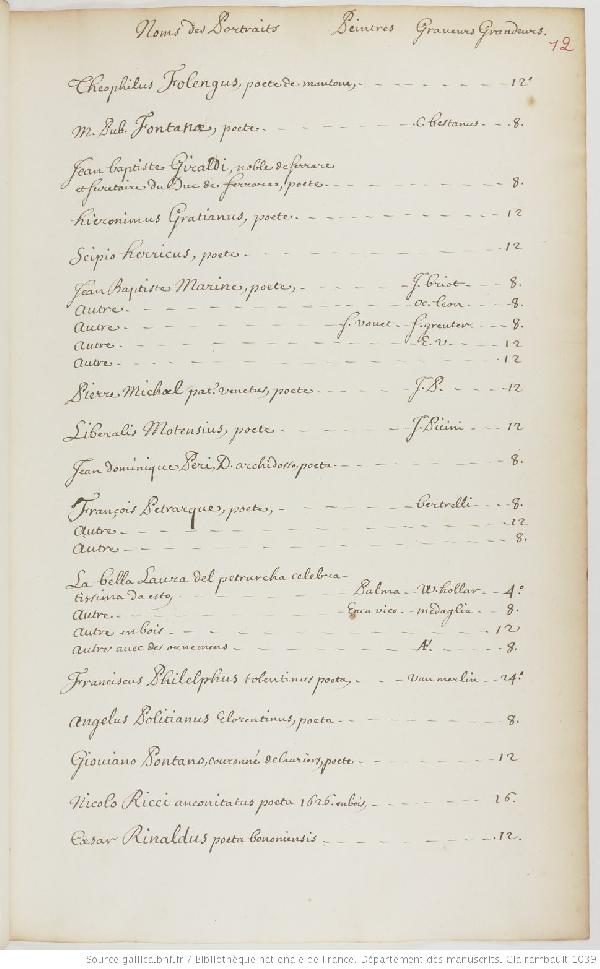 Noms des Portraits Peintres Graveurs Grandeurs.
12
Theophilus Folengus, poete de mantoue, 12°
M. Pub. Fontanæ, poete. C. bestanus 8.
Jean baptiste Giraldi, noble de ferrare
et secretaire du Duc de ferrare, poete. 8.
hieronimus Gratianus, poete. 12
Scipio herricus, poete. 12
Jean Baptiste Marine, poete, J. briot 8.
Autre. oc. leon 8.
Autre. S. vouet f. greuter 8.
Autre. E. v. 12
Autre. 12
Pierre Michael pat. venetus, poete J. P. 12
Liberalis Motensius, poete J. Picini 12
Jean dominique Peri, D. archidosso, poeta 8.
François Petrarque, poete, bertrelli 8.
Autre 12.
Autre 8.
La bella Laura del petrarcha celebra-
tissima da esto, Palma W. hollar 4°
Autre. Enea vico medaglia 8.
Autre en bois 12
Autre avec des ornemens 8.
Franciscus Philelphus tolentinus poeta, van merlin 24°
Angelus Politianus Florentinus, poeta 8.
Gioviano Pontano, couronné de lauriers, poete 12
Nicolo Ricci anconitatus poeta 1626. en bois, 16.
Cæsar Rinaldus poeta bononiensis 12.
Source gallica.bnf.fr / Bibliothèque nationale de France. Département des manuscrits. Clairambault 1039